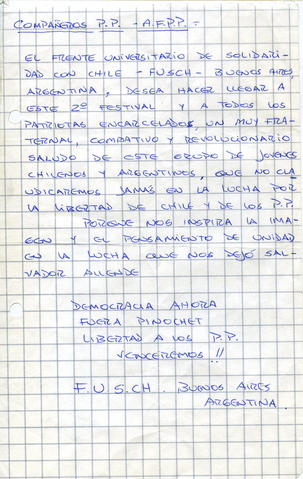 COMPAÑEROS P.P. - A.F.P.P. =
EL FRENTE UNIVERSITARIO DE SOLIDARI-
DAD CON CHILE - FUSCH - BUENOS AIRES,
ARGENTINA, DESEA HACER LLEGAR A
ESTE 2º FESTIVAL Y A TODOS LOS
PATRIOTAS ENCARCELADOS, UN MUY FRA-
TERNAL, COMBATIVO Y REVOLUCIONARIO
SALUDO DE ESTE GRUPO DE JOVENES
CHILENOS Y ARGENTINOS, QUE NO CLA
UDICAREMOS JAMÁS EN LA LUCHA POR
LA LIBERTAD DE CHILE Y DE LOS P.P.
PORQUE NOS INSPIRA LA IMA-
GEN Y EL PENSAMIENTO DE UNIDAD
EN LA LUCHA QUE NOS DEJÓ SAL-
VADOR ALLENDE
DEMOCRACIA AHORA
FUERA PINOCHET
LIBERTAD A LOS P.P.
VENCEREMOS!!
F.U.S.CH. BUENOS AIRES
ARGENTINA.